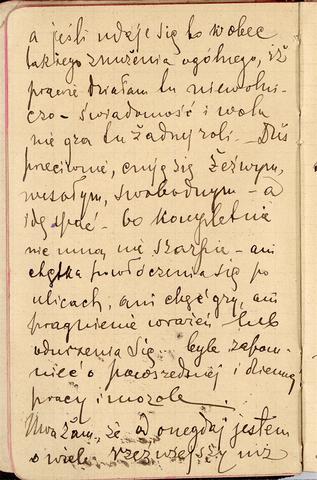 a jeśli udaje się to wobec
takiego znużenia ogólnego, iż
prawie działam tu niewolni-
czo - świadomość i wola
nie gra tu żadnej roli. - Dziś
przeciwnie, czuję się żeźwym,
wesołym, swobodnym - a
idę spać - bo kompletnie
nic mną nie szarpie - ani
chętka powłóczenia się po
ulicach, ani chęć gry, ani
pragnienie wrażeń lub
odurzenia się - byle zapom-
nieć o powszedniej i dziennej
pracy i mozole.
Uważam, że od onegdaj jestem
o wiele rzeźwiejszy niż